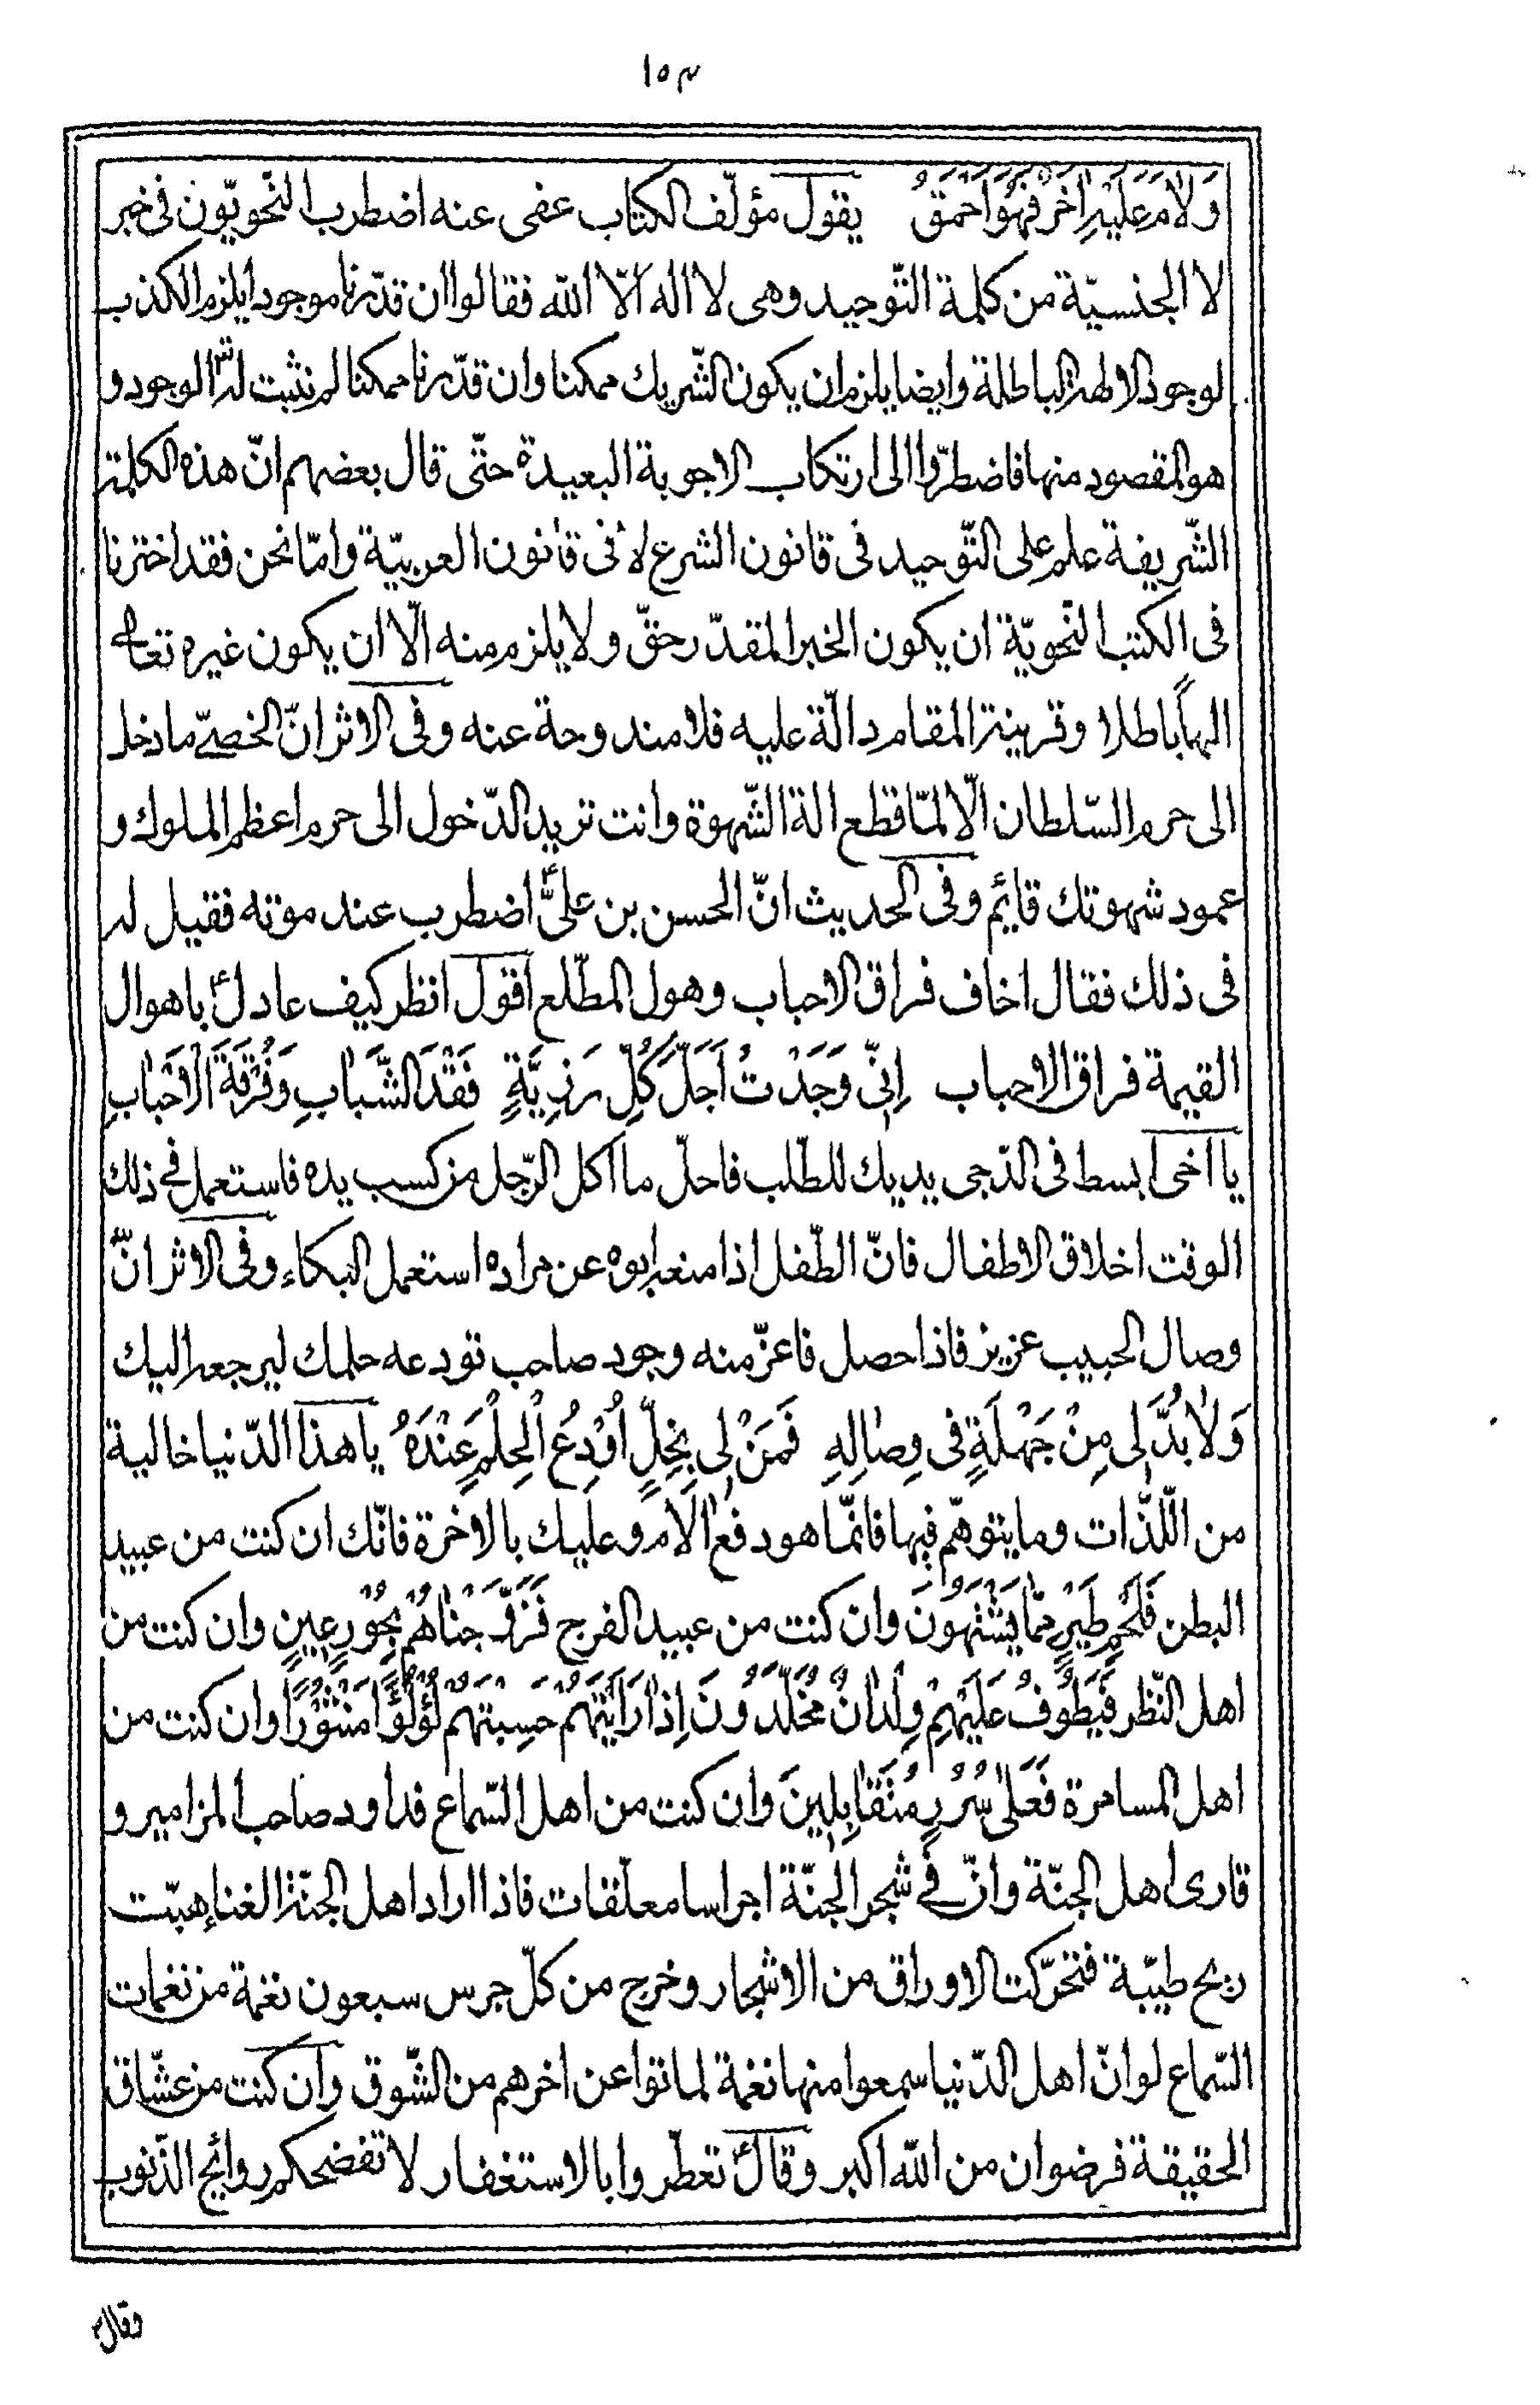 ١٥٣
وَلَامَ عَلَيْهِ اٰخَرَ فَهُوَ اَحْمَقُ يقول مؤلّف الكتاب عفى عنه اضطرب النّحويّون فى خبر
لا الجنسيّة من كلمة التّوحيد وهى لا اله الّا الله فقالوا ان قدّرنا موجود ايلزم الكذب
لوجود الالهة الباطلة وايضا يلزم ان يكون الشّريك ممكنا وان قدّرنا ممكنا لم نثبت له الوجود و
هو المقصود منها فاضطرّوا الى ارتكاب الاجوبة البعيدة حتّى قال بعضهم انّ هذه الكلمة
الشّريفة علم على التّوحيد فى قانون الشرع لا فى قانون العربيّة وامّا نحن فقد اخترنا
فى الكتب النّحويّة ان يكون الخبر المقدّر حقّ ولا يلزم منه الّا ان يكون غيره تعالى
الهاً باطلا وقرينة المقام دالّة عليه فلا مندوحة عنه وفى الاثر انّ الخصىّ ما دخل
الى حرم السّلطان الّا لمّا قطع الة الشّهوة وانت تريد الدّخول الى حرم اعظم الملوك و
عمود شهوتك قائم وفى الحديث انّ الحسن بن علىّ ع اضطرب عند موته فقيل له
فى ذلك فقال اخاف فراق الاحباب وهول المطّلع اقول انظر كيف عادل ع باهوال
القيمة فراق الاحباب اِنّى وَجَدْتُ اَجَلَّ كُلِّ رَزِيَّةٍ فَقْدَ الشَّبَابِ وَفُرْقَةَ الْاَحْبَابِ
يا اخى ابسط فى الدّجى يديك للطّلب فاحلّ ما اكل الرّجل من كسب يده فاستعمل فى ذلك
الوقت اخلاق الاطفال فانّ الطّفل اذا منعه ابوه عن مراده استعمل البكاء وفى الاثر انّ
وصال الحبيب عزيز فاذا حصل فاعزّ منه وجود صاحب تودعه حلمك ليرجعه اليك
وَلَا بُدَّ لِى مِنْ جَهْلَةٍ فِى وِصَالِهِ فَمَنْ لِى بِخِلٍّ اُوْدِعُ الْحِلْمَ عِنْدَهُ يا هذا الدّنيا خالية
من اللّذّات وما يتوهّم فيها فانّما هو دفع الام وعليك بالاخرة فانّك ان كنت من عبيد
البطن فَلَحْمِ طَيْرٍ مِمَّا يَشْتَهُونَ وان كنت من عبيد الفرج فَزَوَّجْنَاهُمْ بِحُوْرٍ عِينٍ وان كنت من
اهل النّظر فَيَطُوفُ عَلَيْهِمْ وِلْدَانٌ مُخَلَّدُونَ اِذَا رَاَيْتَهُمْ حَسِبْتَهُمْ لُؤْلُؤًا مَنْثُوْرًا وان كنت من
اهل المسامرة فَعَلٰى سُرُرٍ مُتَقَابِلِينَ وان كنت من اهل السّماع فداود صاحب المزامير و
قارى اهل الجنّة وانّ فى شجر الجنّة اجراسا معلّقات فاذا اراد اهل الجنّة الغناء هبّت
ريح طيّبة فتحرّكت الاوراق من الاشجار وخرج من كلّ جرس سبعون نغمة من نغمات
السّماع لو انّ اهل الدّنيا سمعوا منها نغمة لماتوا عن اخرهم من الشّوق وان كنت من عشّاق
الحقيقة فرضوان من الله اكبر وقال ع تعطّروا بالاستغفار لا تفضحكم روائح الذّنوب
وقال